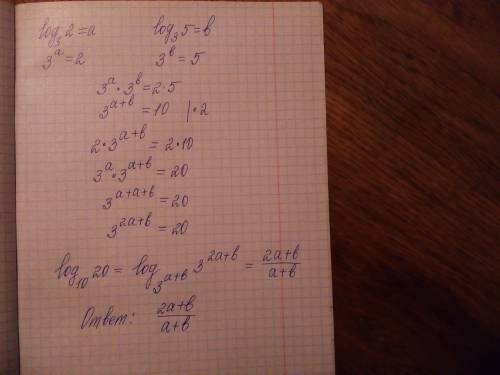 log₃2=a log₃5=b
3ᵃ=2 3ᵇ=5
3ᵃ·3ᵇ=2·5
3ᵃ⁺ᵇ=10 |·2
2·3ᵃ⁺ᵇ=2·10
3ᵃ·3ᵃ⁺ᵇ=20
3ᵃ⁺ᵃ⁺ᵇ=20
3²ᵃ⁺ᵇ=20
log₁₀20=log_(3ᵃ⁺ᵇ) 3²ᵃ⁺ᵇ=(2a+b)/(a+b)
Ответ: (2a+b)/(a+b)